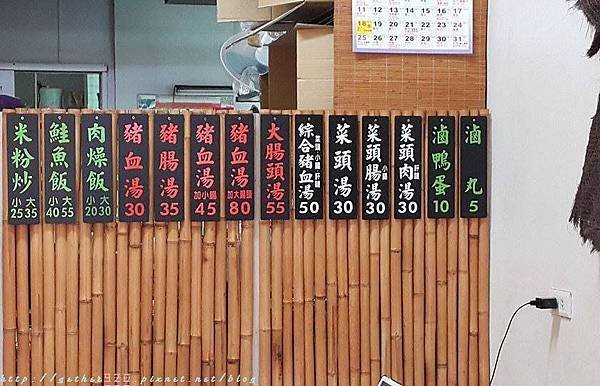 米粉炒 小25 大35
鮭魚飯 小40 大55
肉燥飯 小20 大30
豬血湯 30
豬腸湯 35
豬血湯 加小腸 45
豬血湯 加大腸頭 80
大腸頭湯 55
綜合豬血湯 50
菜頭湯 30
菜頭腸湯 小腸 30
菜頭肉湯 30
滷鴨蛋 10
滷丸 5
11 12 13 14 15 16 17
18 19 20 21 22 23 24
25 26 27 28 29 30 31